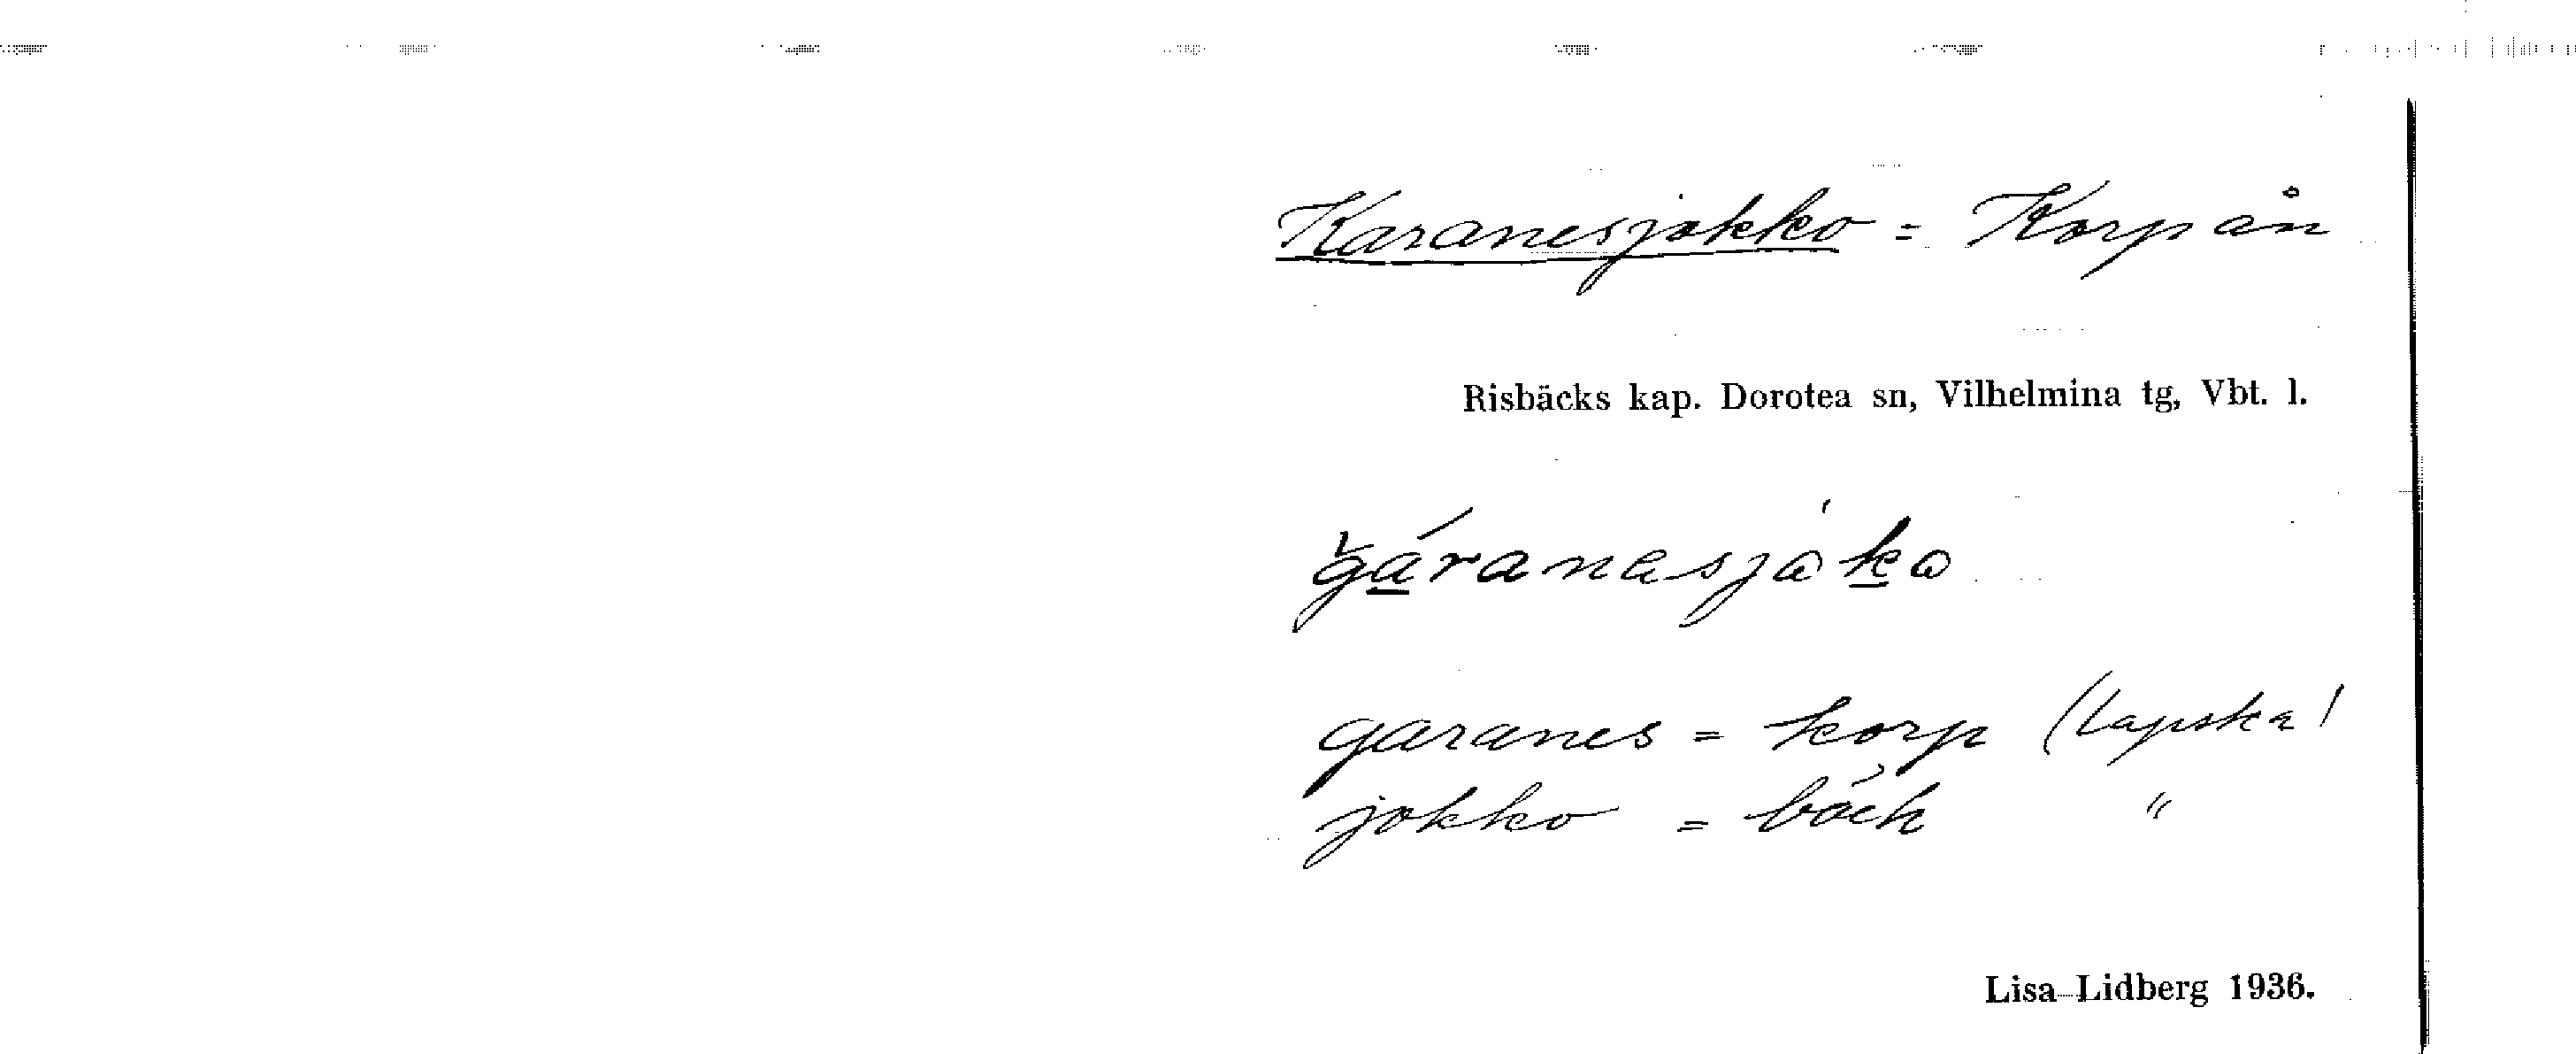 Karanesjokko = Korpån
Risbäcks kap. Dorotea sn, Vilhelmina tg, Vbt. l.
garanes = korp (Lapska)
jokko = bäck "
Lisa Lidberg 1936.